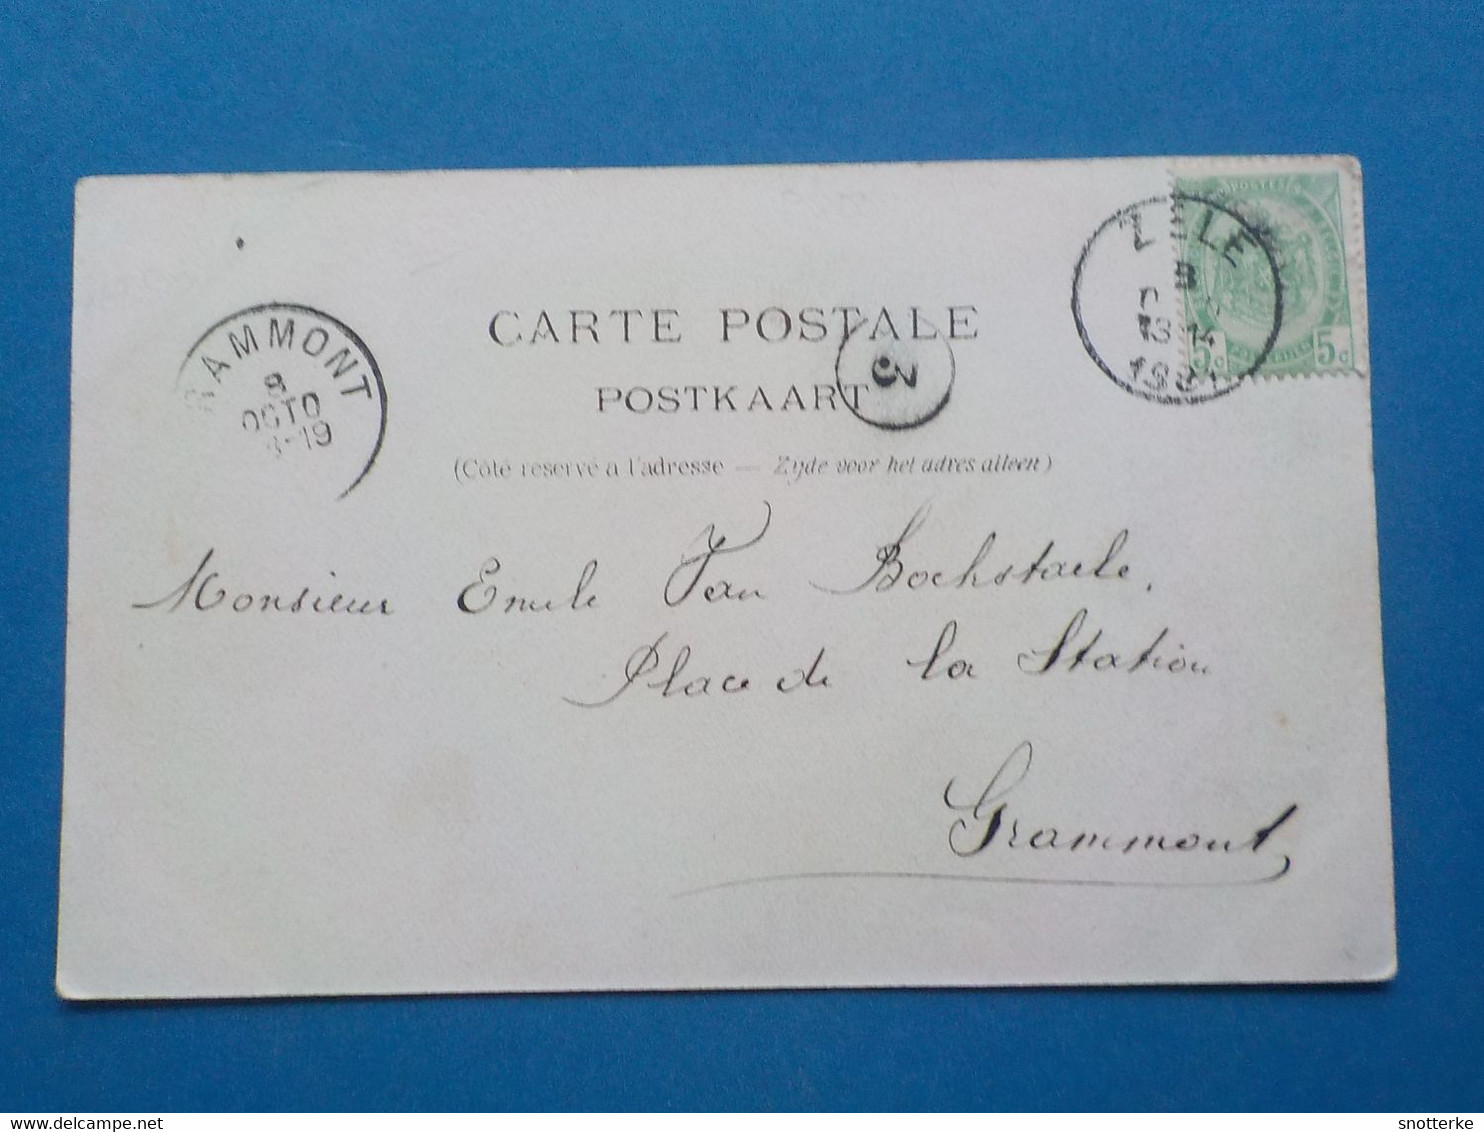 ZELE
8
13-14
POSTES
5c 5c
CARTE POSTALE
POSTKAART
3
(Côté réservé a l'adresse — Zyde voor het adres alleen)
AMMONT
8
OCTO
-19
Monsieur Emile Van Bockstaele.
Place de la Station
Grammont
www.delcampe.net
snotterke